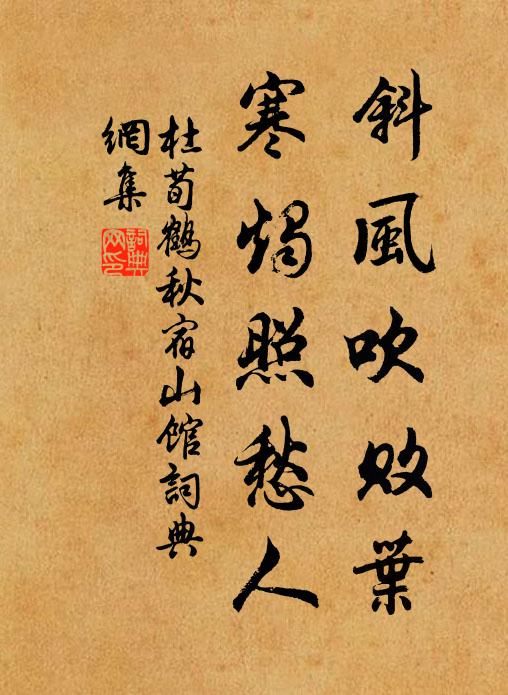 斜風吹敗葉
寒燭照愁人
杜荀鶴秋宿山館詞典
網集
詞典網印